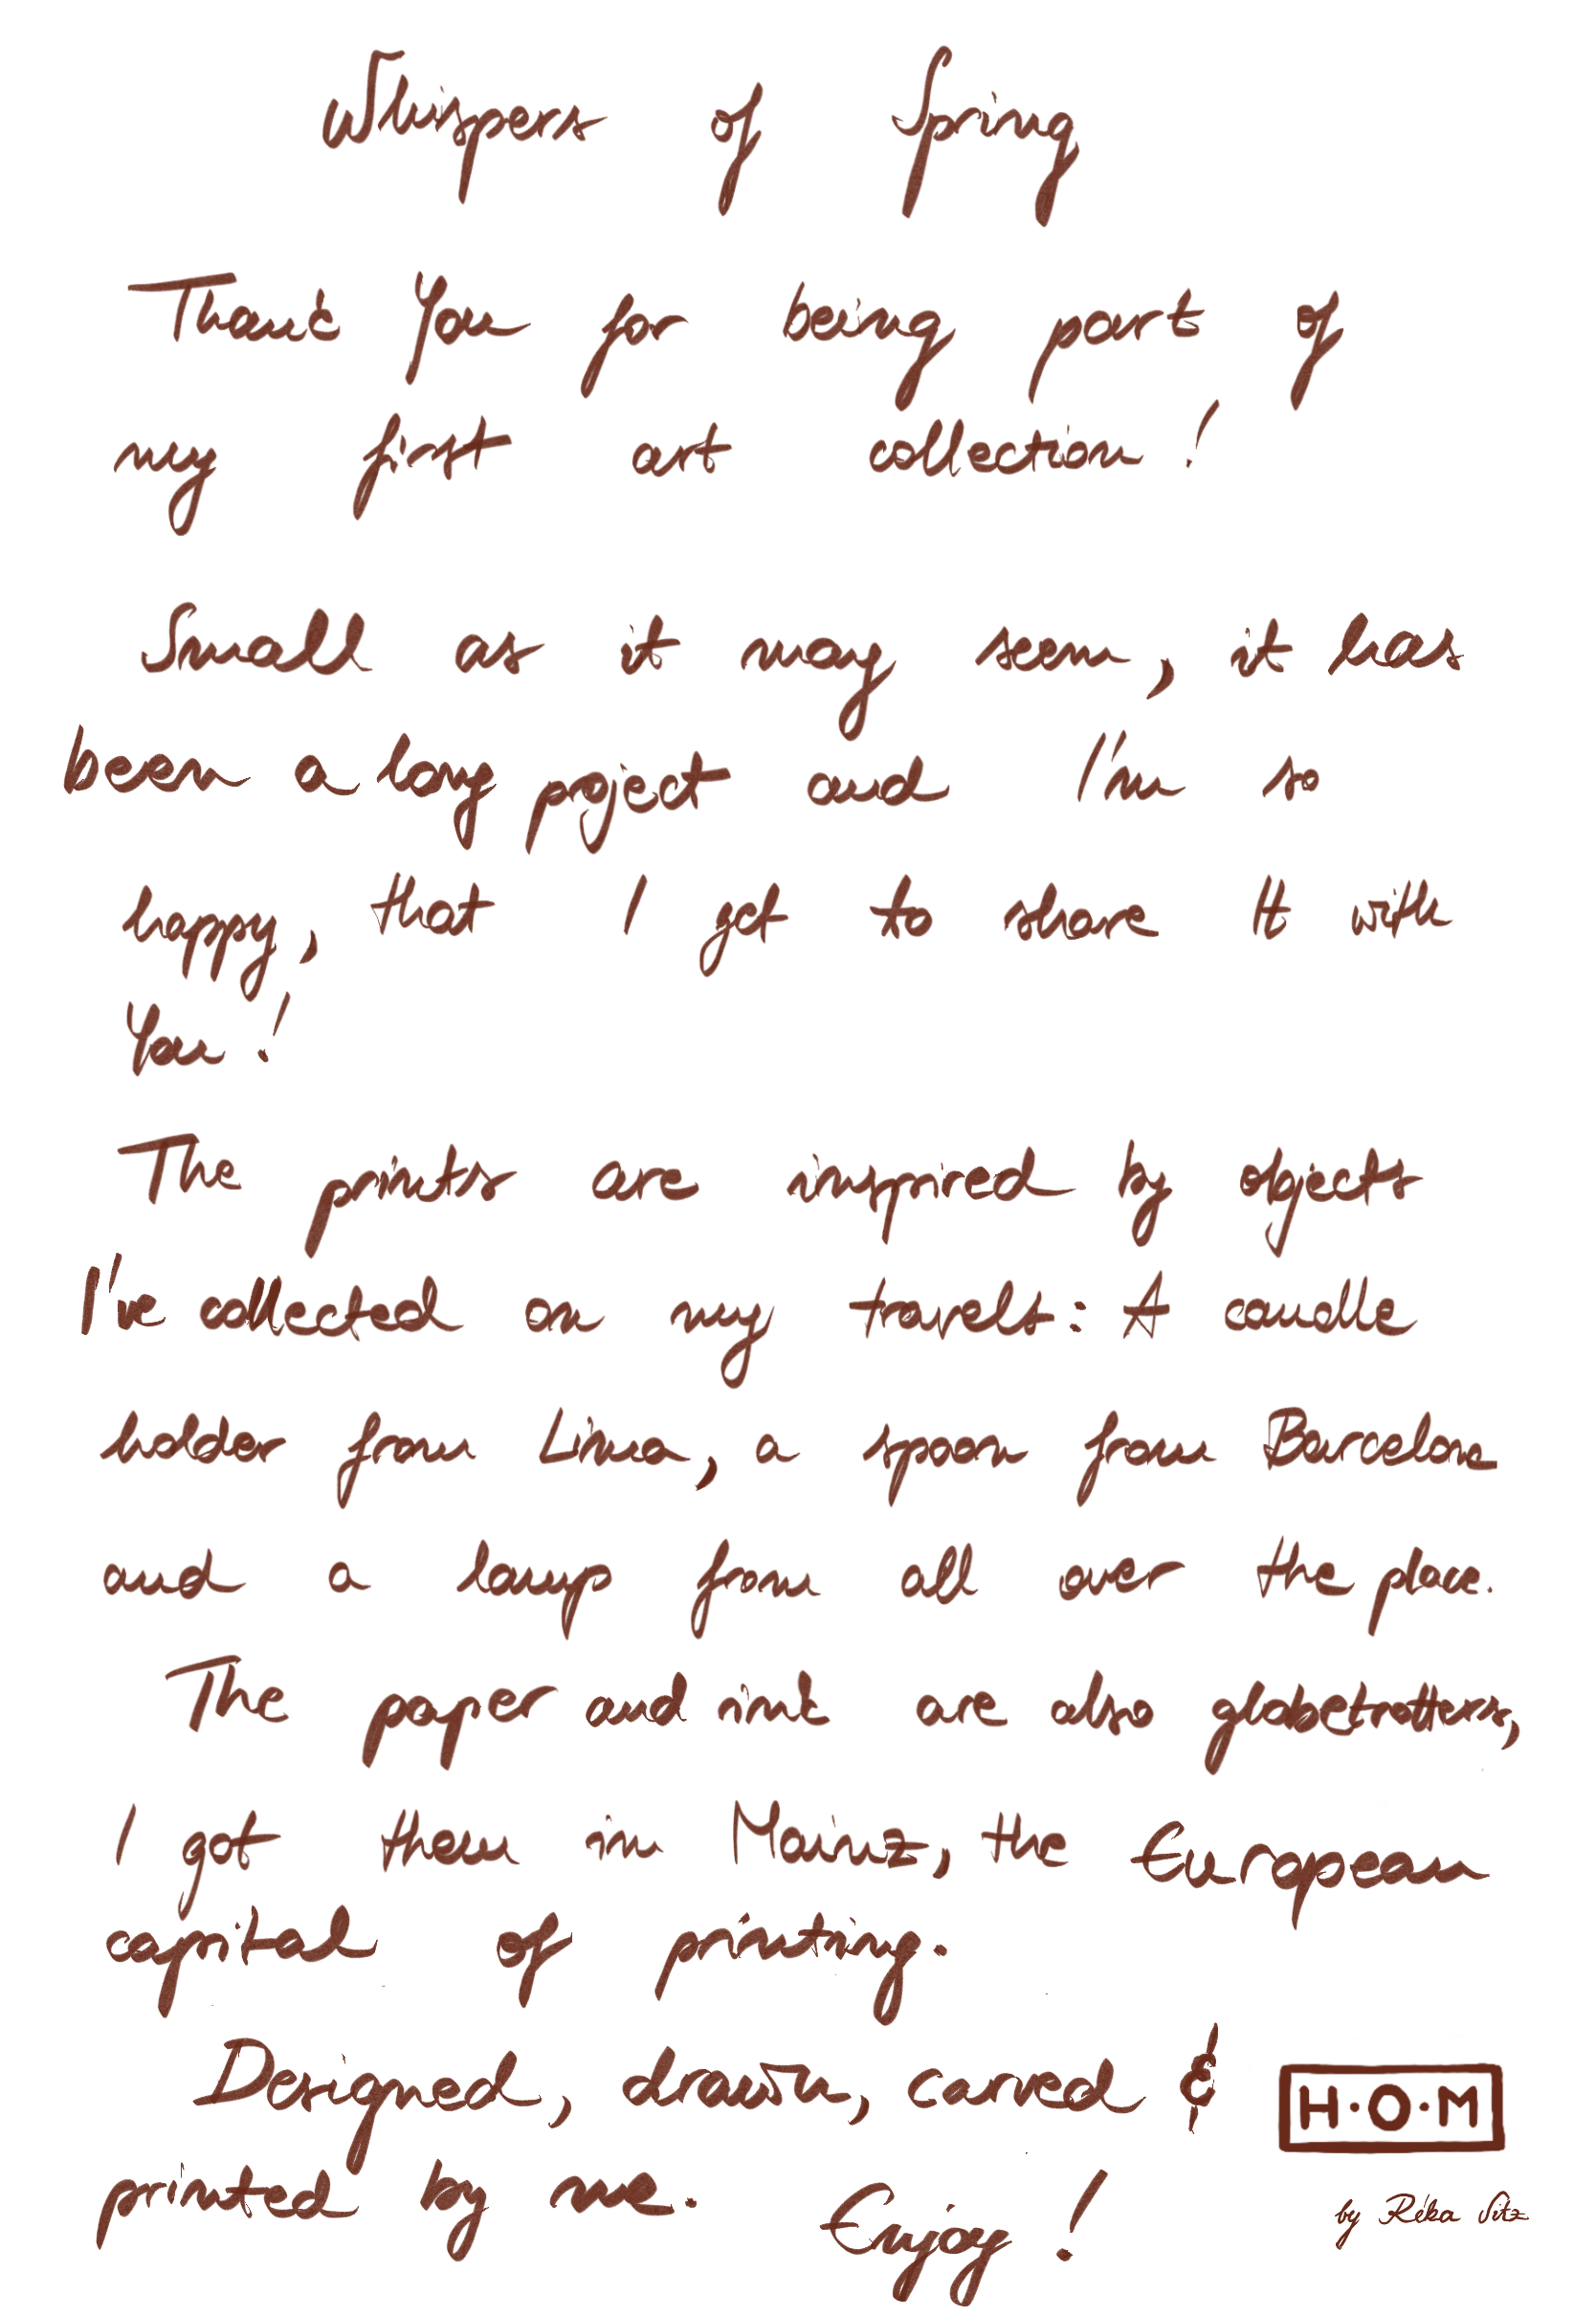 Whispers of Spring
Thank You for being part of
my first art collection!
Small as it may seem, it has
been a long project and I'm so
happy, that I get to share It with
You!
The prints are inspired by objects
I've collected on my travels: A candle
holder from Lima, a spoon from Barcelona
and a lamp from all over the place.
The paper and ink are also globetrotters,
I got them in Mainz, the European
capital of printing.
Designed, drawn, carved &
H·O·M
printed by me. Enjoy!
by Réka Sitz